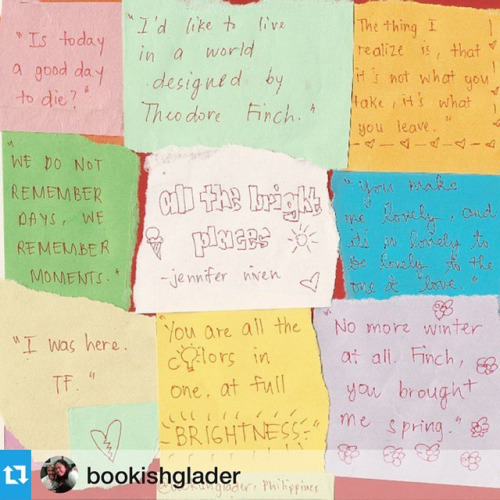 "Is today
a good day
to die?"
"I'd like to live
in a world
designed by
Theodore Finch."
The thing I
realize is, that
it's not what you
take, it's what
you leave."
"WE DO NOT
REMEMBER
DAYS, WE
REMEMBER
MOMENTS."
all the bright
places
-jennifer niven
"you make
me lovely, and
it's so lovely to
be lovely to the
one I love."
"I was here.
TF."
"You are all the
colors in
one, at full
BRIGHTNESS."
"No more winter
at all. Finch,
you brought
me spring."
@bookishglader, Philippines
bookishglader